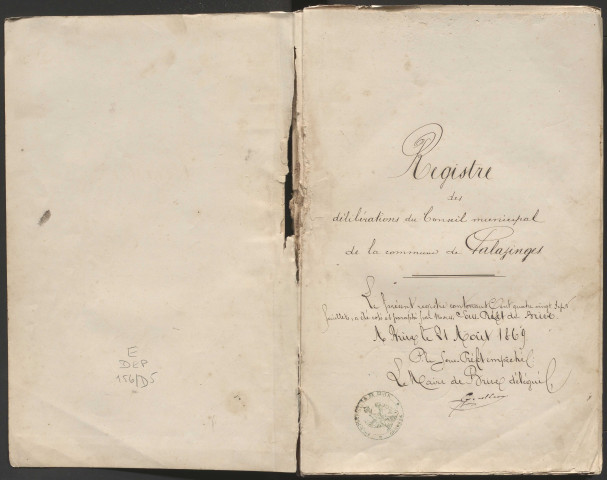 E
DEP
156/D5
Registre
des
délibérations du Conseil municipal
de la commune de Palazinges
Le présent registre contenant Cent quatre vingt sept
feuillets, a été coté et paraphé par Nous Sous Préfet de Brive.
A Brive le 21 Août 1869
P. le Sous Préfet empêché
Le Maire de Brive délégué